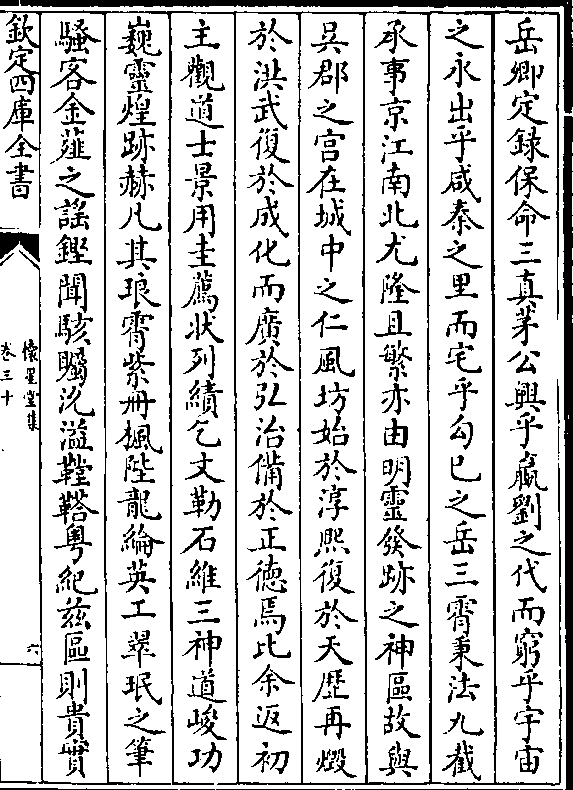 岳卿定録保命三真茅公興乎嬴劉之代而窮乎宇宙
之永出乎咸秦之里而宅乎勾巳之岳三霄秉法九截
承事京江南北尤隆且繁亦由明靈發跡之神區故與
吳郡之宫在城中之仁風坊始於淳熙復於天歴再燬
於洪武復於成化而廣於弘治備於正德焉比余返初
主觀道士景用圭薦狀列績乞文勒石維三神道峻功
巍靈煌跡赫凡其琅霄紫册楓陛龍綸英工翠珉之筆
騷客金薤之謡鏗聞駭矚汎溢鞺鞳粤紀兹區則貴實
欽定四庫全書
懷星堂集
卷三十
六